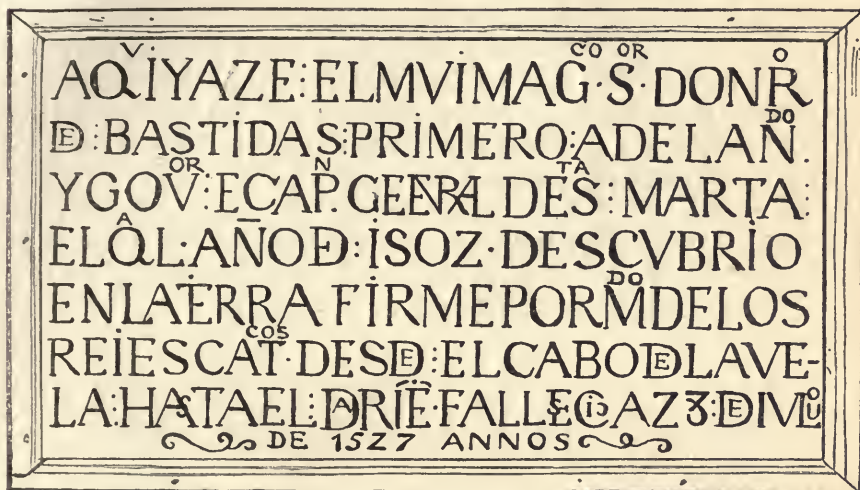 AQVI YAZE: EL MVI MAGCO · SOR · DON RO
DE : BASTIDAS : PRIMERO : ADELANDO.
Y GOVOR : E CAPN. GENERAL DE STA : MARTA :
EL QAL · AÑO DE : ISOZ · DESCVBRIO
EN LA TIERRA FIRME POR MDO DE LOS
REIES CATCOS · DESDE : EL CABO DE LA VE-
LA : HASTA EL : DARIE · FALLESCIO A Z8 · DE IVLIO
DE 1527 ANNOS